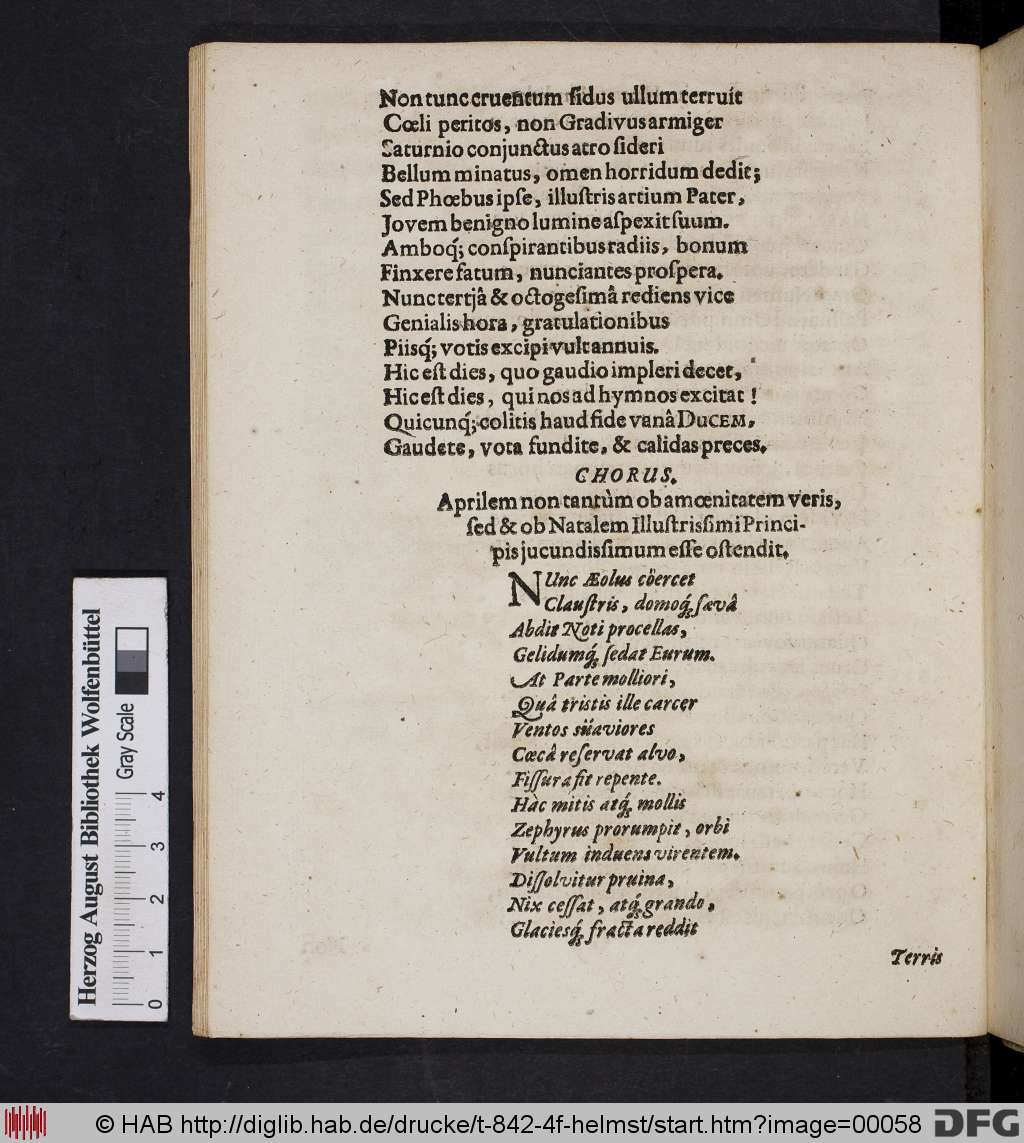 Non tunc cruentum ſidus ullum terruit
Cœli peritos, non Gradivus armiger
Saturnio conjunctus atro ſideri
Bellum minatus, omen horridum dedit;
Sed Phœbus ipſe, illuſtris artium Pater,
Jovem benigno lumine aſpexit ſuum.
Amboq́; conſpirantibus radiis, bonum
Finxere fatum, nunciantes proſpera.
Nunc tertjâ & octogeſimâ rediens vice
Genialis hora, gratulationibus
Piisq́; votis excipi vult annuis.
Hic eſt dies, quo gaudio impleri decet,
Hic eſt dies, qui nos ad hymnos excitat!
Quicunq́; colitis haud fide vanâ DUCEM,
Gaudete, vota fundite, & calidas preces.
CHORUS.
Aprilem non tantùm ob amœnitatem veris,
ſed & ob Natalem Illuſtrisſimi Princi-
pis jucundisſimum eſſe oſtendit.
NUnc Æolus cöercet
Clauſtris, domoq́; ſævâ
Abdit Noti procellas,
Gelidumq́; ſedat Eurum.
At Parte molliori,
Quâ triſtis ille carcer
Ventos süaviores
Cœcâ reſervat alvo,
Fiſſura fit repente.
Hàc mitis atq́; mollis
Zephyrus prorumpit, orbi
Vultum induens virentem.
Diſſolvitur pruina,
Nix ceſſat, atq́; grando,
Glaciesq́; fracta reddit
Terris
Herzog August Bibliothek Wolfenbüttel
Gray Scale
0 1 2 3 4
© HAB http://diglib.hab.de/drucke/t-842-4f-helmst/start.htm?image=00058
DFG